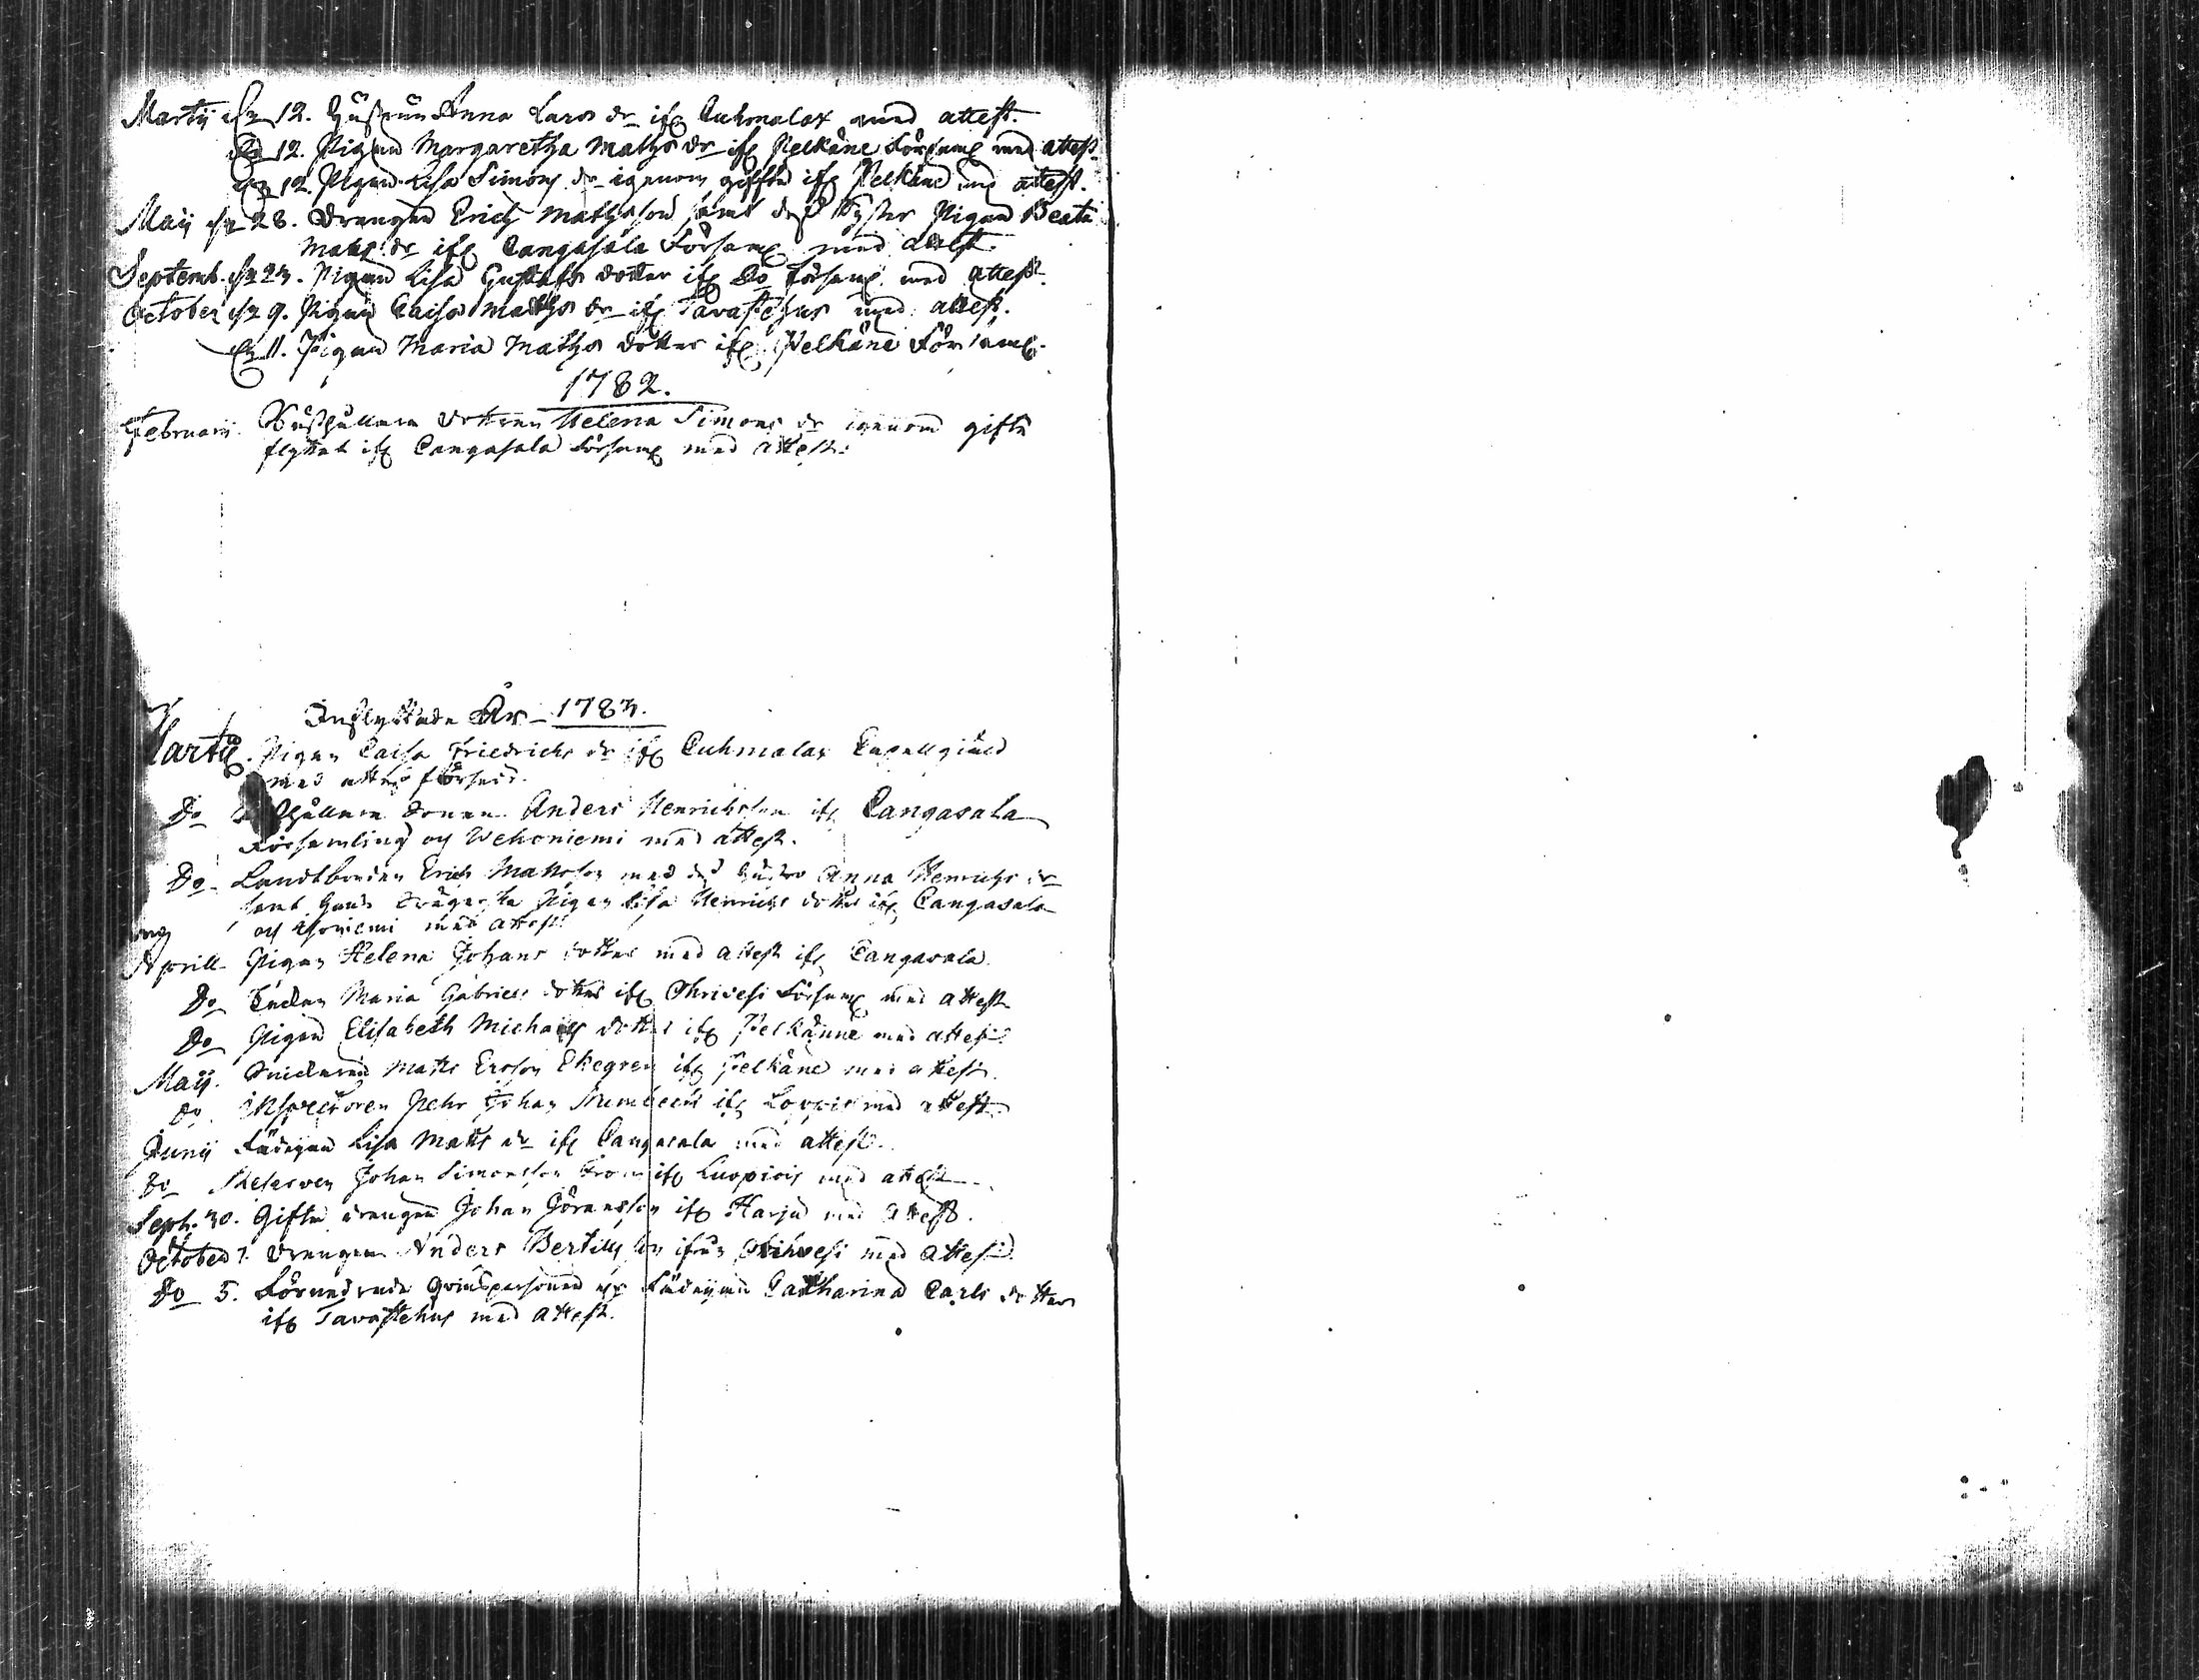 Martij 12. Hustrun Anna Lars dr ifr Cuhmalax med attest.
12. Pigan Margaretha Maths dr ifr Pelkäne Församl med attest.
12. Pigan Lisa Simons dr igenom gifte ifr Pelkäne med attest.
Maij 28. Drengen Erich Mathsson samt dess Syster Pigan Beata
Mats dr ifr Cangasala Församl med attest.
Septemb. 23. Pigan Lisa Gustafs dotter ifr Do Församl med attest.
October 9. Pigan Caisa Maths dr ifr Tavastehus med attest.
11. Pigan Maria Maths dotter ifr Pelkäne Församl.
1782.
Februarij. Dottren Helena Simons dr igenom gifte
flyttat ifr Cangasala Församl med attest.
Inflyttade År 1783.
Martij. Pigan Caisa Friedrichs dr ifr Cuhmalax Capellgiäld
med attest försedd.
Do Anders Henrichsson ifr Cangasala
Församling och Wehoniemi med attest.
Do Landtbonden Erich Mattsson med dess hustro Anna Henrichs dr
samt Pigan Lisa Henrichs dotter ifr Cangasala
och med attest.
Aprill Pigan Helena Johans dotter med attest ifr Cangasala.
Do Maria Gabriels dotter ifr Ohrivesi Församl med attest
Do Pigan Elisabeth Michaels dotter ifr Pelkänne med attest
Maij. Matts Ersson Ekegren ifr Pelkäne med attest.
do. Inspectoren Pehr Johan ifr med attest
Junij Lisa Matts dr ifr Cangasala med attest.
Do Johan Simonsson ifr Luopiois med attest
Sept. 30. Gifte drengen Johan Göransson ifr Harju med attest.
October 1. Drengen Anders Bertillsson ifrån med attest
Do 5. Catharina Carls dotter
ifr Tavastehus med attest.